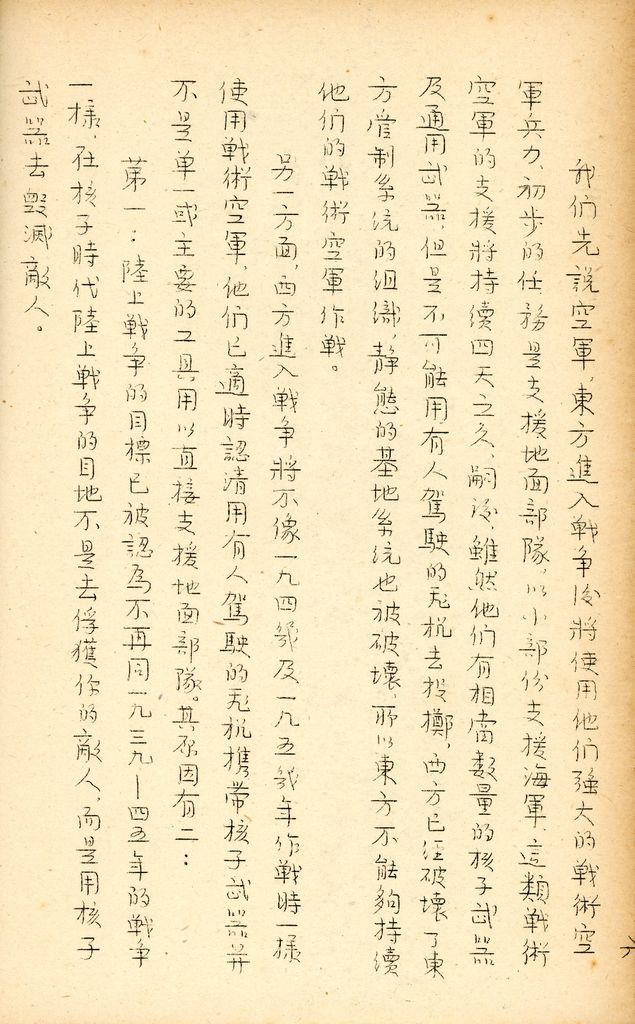 我们先說空軍，東方進入戰争後將使用他们强大的戰術空
軍兵力、初步的任務是支援地面部隊。以小部份支援海軍，這類戰術
空軍的支援將持續四天之久，嗣後，雖然他们有相當数量的核子武器
及通用武器，但是不可能用有人駕駛的飛机去投擲，西方已经破壞了東
方管制系统的组織，静態的基地系统也被破壞，所以東方不能夠持續
他们的戰術空軍作戰。
另一方面，西方進入戰争將不像一九四幾及一九五幾年作戰時一樣
使用戰術空軍，他们已適時認清用有人駕駛的飛机携带核子武器并
不是单一或主要的工具用以直接支援地面部隊。其原因有二：
第一：陸上戰争的目標已被認為不再同一九三九—四五年的戰争
一樣，在核子時代陸上戰争的目地不是去俘獲你的敵人，而是用核子
武器去毁滅敵人。
六